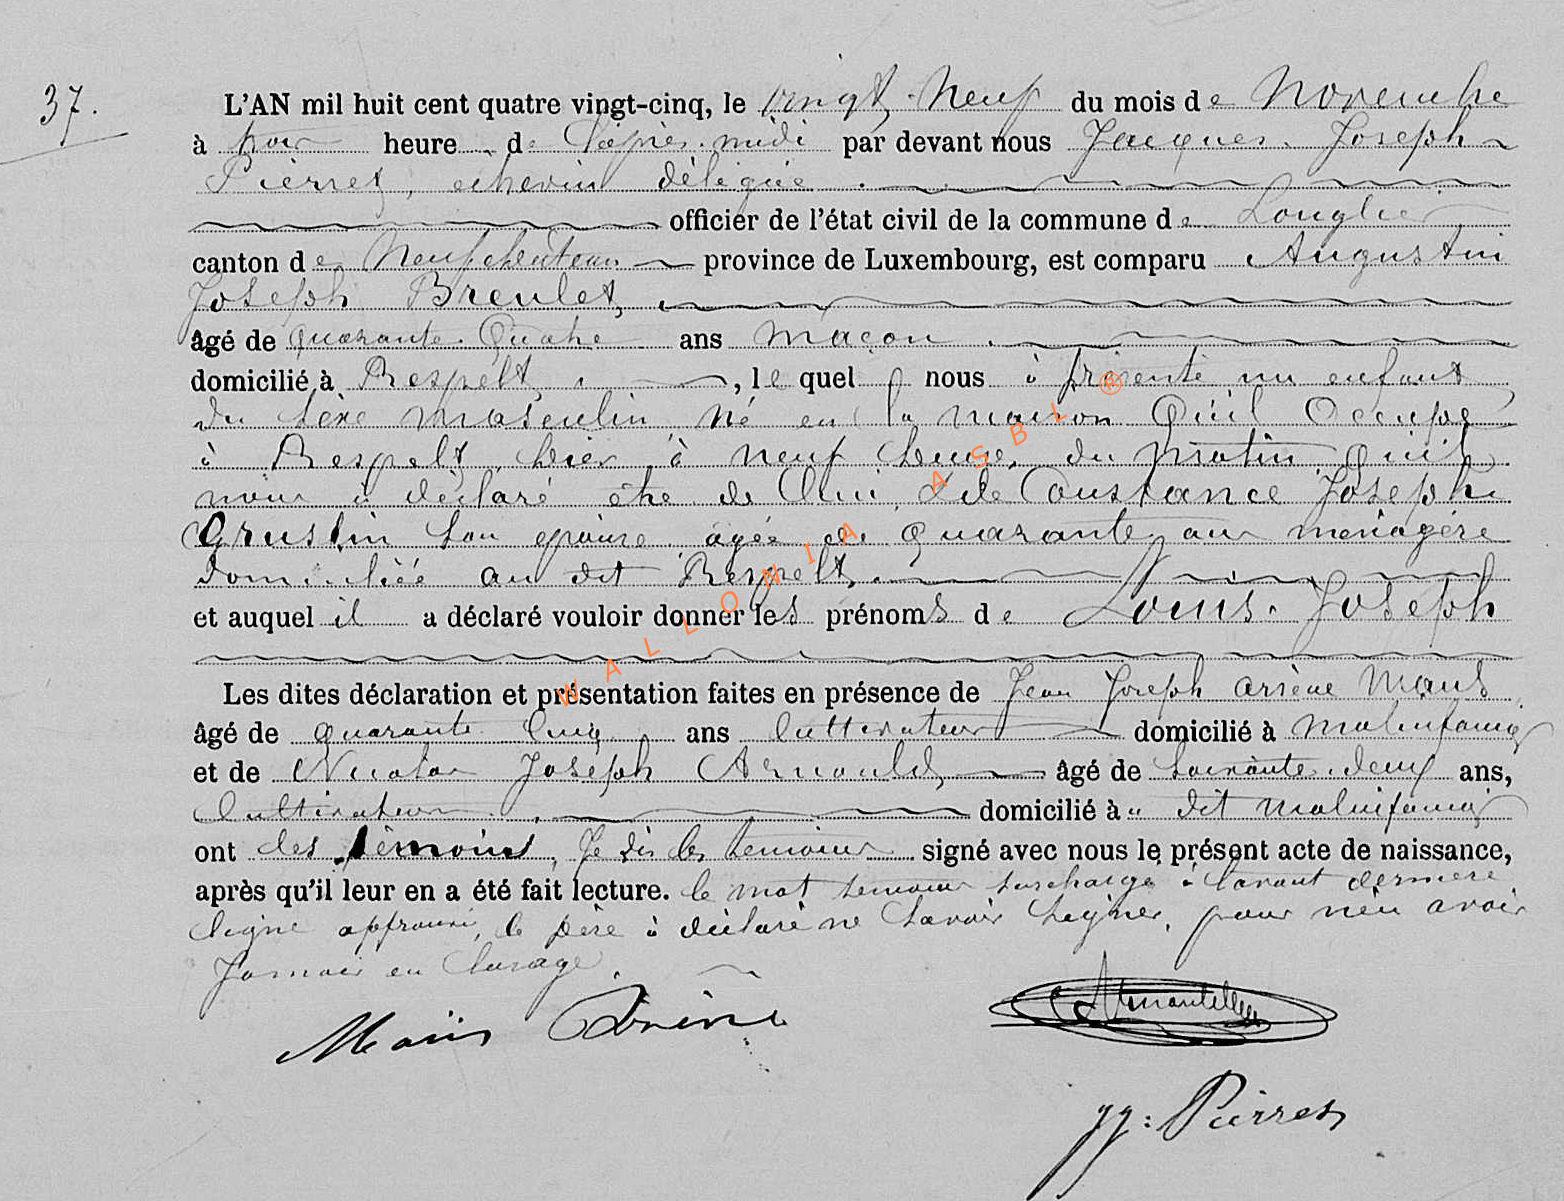 37.
L'AN mil huit cent quatre vingt-cinq, le vingt-neuf du mois de Novembre
à trois heure de l'après-midi par devant nous Jacques Joseph
Pierret, echevin délégué
officier de l'état civil de la commune de Longlier
canton de Neufchâteau province de Luxembourg, est comparu Augustin
Joseph Breulet,
âgé de quarante quatre ans maçon
domicilié à Respelt, le quel nous à présenté un enfant
du sexe masculin né en la maison qu'il occupe
à Respelt, hier, à neuf heures du matin, qu'il
nous à déclaré être de lui et de Constance Joseph
Grustin son épouse, agée de quarante ans ménagère
domiciliée au dit Respelt,
et auquel il a déclaré vouloir donner les prénoms de Louis Joseph
Les dites déclaration et présentation faites en présence de Jean Joseph Arsène Maus
âgé de quarante cinq ans cultivateur domicilié à Molinfaing
et de Nicolas Joseph Arnould, âgé de soixante-deux ans,
cultivateur domicilié à u dit Molinfaing
ont les témoins, Je dis les témoins signé avec nous le présent acte de naissance,
après qu'il leur en a été fait lecture. le mot témoins surchargé à l'avant dernière
ligne approuvé, le père à déclaré ne savoir signer, pour n'en avoir
Jamais eu l'usage.
Maus Arsène
JJ: Pierret
WALLONIA ASBL ®